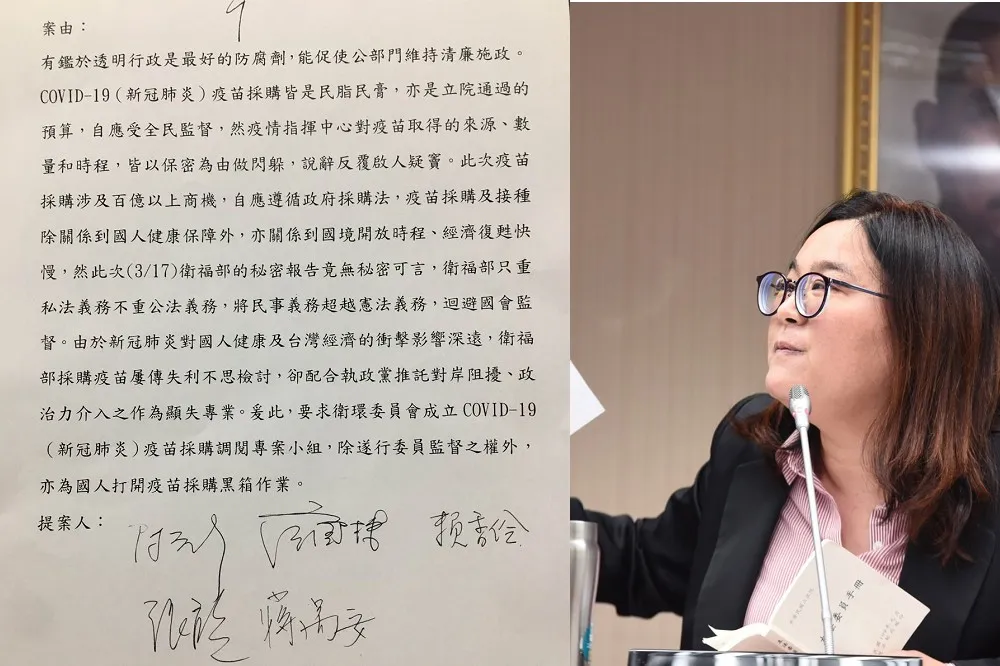 案由：
有鑑於透明行政是最好的防腐劑,能促使公部門維持清廉施政。
COVID-19（新冠肺炎）疫苗採購皆是民脂民膏，亦是立院通過的
預算，自應受全民監督，然疫情指揮中心對疫苗取得的來源、數
量和時程，皆以保密為由做閃躲，說辭反覆啟人疑竇。此次疫苗
採購涉及百億以上商機，自應遵循政府採購法，疫苗採購及接種
除關係到國人健康保障外，亦關係到國境開放時程、經濟復甦快
慢，然此次(3/17)衛福部的秘密報告竟無秘密可言，衛福部只重
私法義務不重公法義務，將民事義務超越憲法義務，迴避國會監
督。由於新冠肺炎對國人健康及台灣經濟的衝擊影響深遠，衛福
部採購疫苗屢傳失利不思檢討，卻配合執政黨推託對岸阻擾、政
治力介入之作為顯失專業。爰此，要求衛環委員會成立 COVID-19
（新冠肺炎）疫苗採購調閱專案小組，除遂行委員監督之權外，
亦為國人打開疫苗採購黑箱作業。
提案人：
賴香伶
蔣萬安
委員手冊